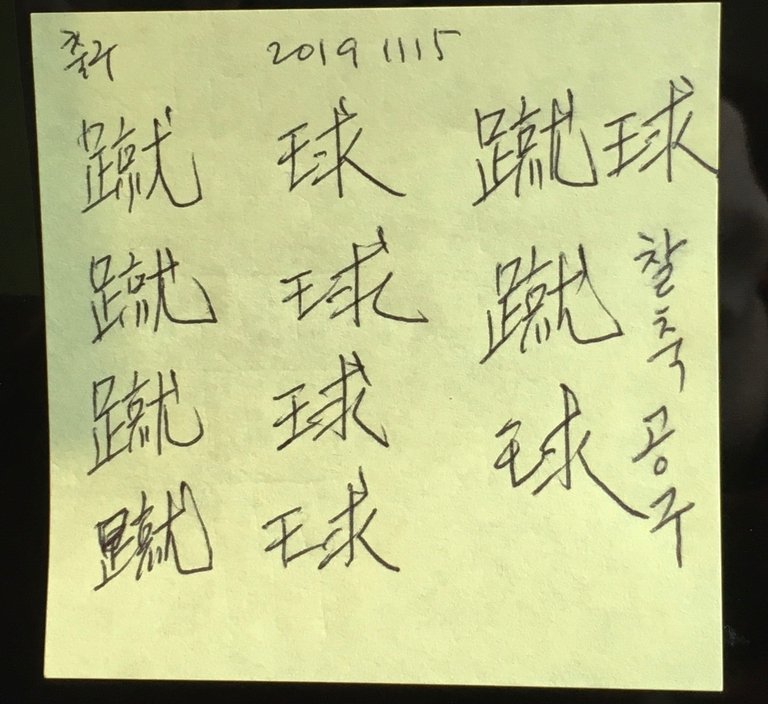 축구 2019 11 15
蹴 球 蹴球
蹴 球 蹴 찰축
蹴 球 球 공구
蹴 球